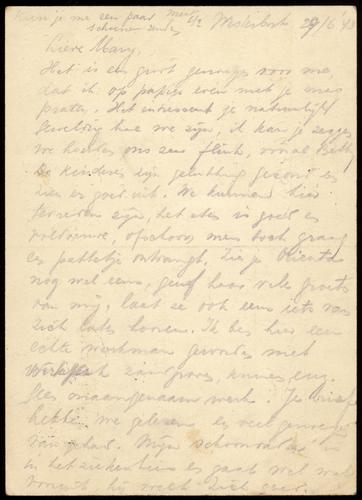 Kun je me een paar
schoenen
Westerbork 29/6 '43
Lieve Mary,
Het is een groot genoegen voor me,
dat ik op papier even met je mag
praten. Het interesseert je natuurlijk
geweldig hoe we zijn, ik kan je zeggen
we houden ons zeer flink, vooral
De kinderen zijn gelukkig gezond en
zien er goed uit. We kunnen hier
tevreden zijn, het eten is goed en
voldoende, ofschoon men toch graag
een pakketje ontvangt, zie je
nog wel eens, geef haar vele groeten
van mij, laat ze ook eens iets van
zich laten hooren. Ik ben hier een
echte werkman geworden met
zand graven, kruien, enz.
Geen onaangenaam werk. Je brief
hebben we gelezen en veel genoegen
van gehad. Mijn schoonvader is
in het ziekenhuis en gaat wel wat
vooruit, hij weet zich